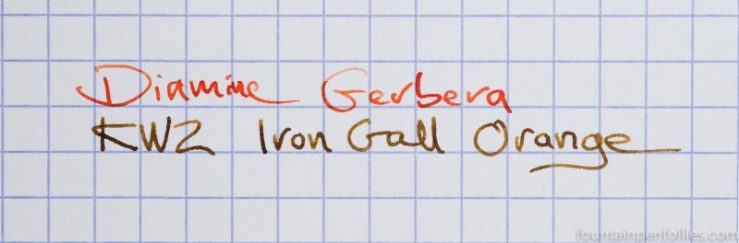 Diamine Gerbera
KWZ Iron Gall Orange
fountainpenfollies.com